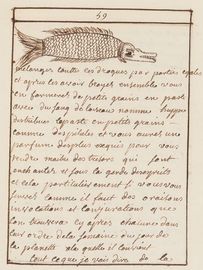 59
mélanger toutte ces drogues par parties égales
et apres les avoir broyez ensemble vous
en formerez de petits grains en paste
avec du sang de l'oiseau nommé huppe
distribuez la pate en petits grains
comme des pilules et vous aurez un
parfum des plus exquis pour vous
rendre maitre des tresors qui sont
enchantez et sous la garde des esprits
et cela particulierement si vous vous
servez comme il faut des oraisons
invocations et conjurations que
tu trouveras cy apres chacune dans
leur ordre de la semaine du jour de
la planette a la quelle il convient
tout ce que je vais dire de la